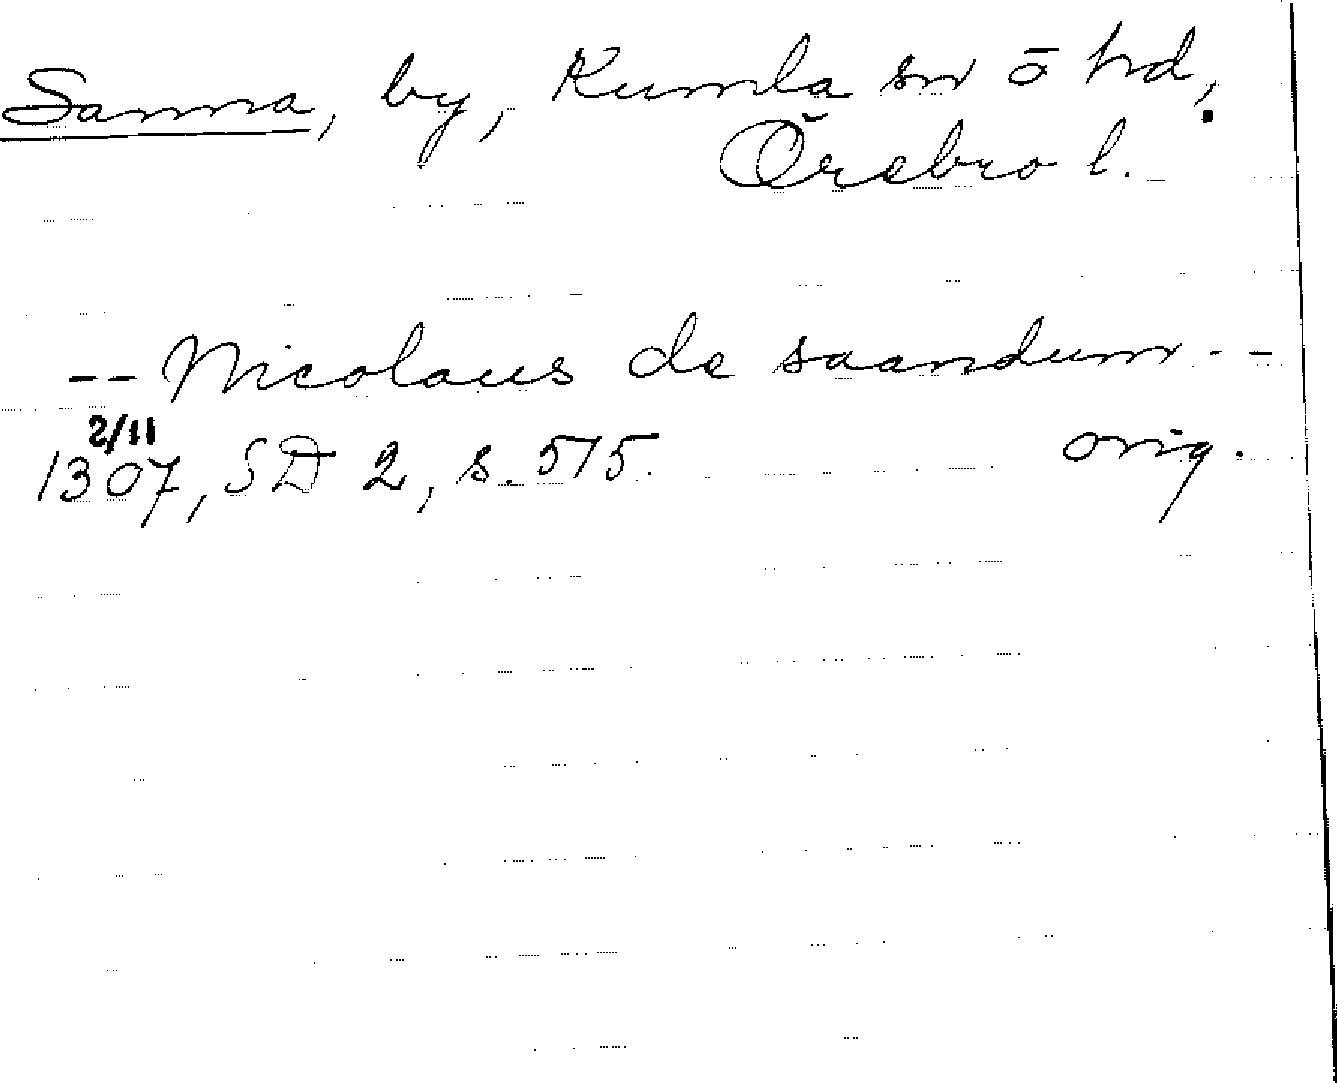 Sanna, by, Kumla sn o hd,
Örebro l.
-- Nicolaus de saandum --
2/11
1307, SD 2, s. 515. orig.